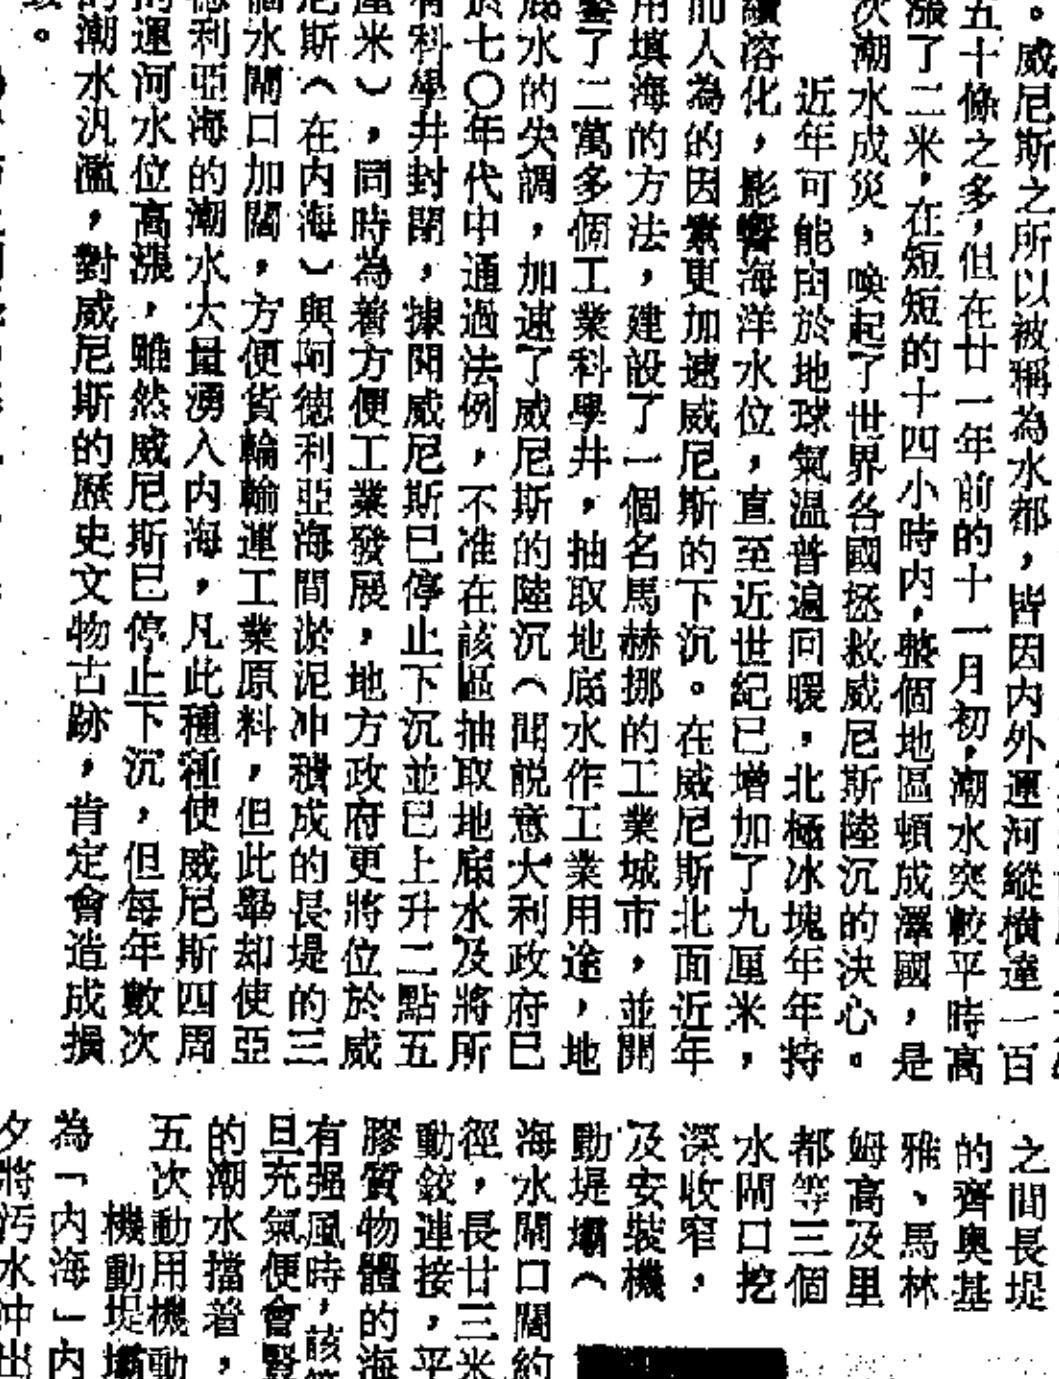 。威尼斯之所以被稱為水都，皆因內外運河縱橫達一百
五十條之多，但在廿一年前的十一月初，潮水突較平時高
漲了二米，在短短的十四小時內，整個地區頓成澤國，是
次潮水成災，喚起了世界各國拯救威尼斯陸沉的決心。
近年可能由於地球氣溫普遍回暖，北極冰塊年年持
續溶化，影響海洋水位，直至近世紀已增加了九厘米，
而人為的因素更加速威尼斯的下沉。在威尼斯北面近年
用填海的方法，建設了一個名馬赫挪的工業城市，並開
鑿了二萬多個工業科學井，抽取地底水作工業用途，地
底水的失調，加速了威尼斯的陸沉（聞說意大利政府已
於七〇年代中通過法例，不准在該區抽取地底水及將所
有科學井封閉，據聞威尼斯已停止下沉並已上升二點五
厘米），同時為着方便工業發展，地方政府更將位於威
尼斯（在內海）與阿德利亞海間淤泥冲積成的長堤的三
個水閘口加闊，方便貨輪輸運工業原料，但此舉却使亞
德利亞海的潮水大量湧入內海，凡此種種使威尼斯四周
的運河水位高漲，雖然威尼斯已停止下沉，但每年數次
的潮水汎濫，對威尼斯的歷史文物古跡，肯定會造成損
。
之間長堤
的齊奧基
雅、馬林
姆高及里
都等三個
水閘口挖
深收窄，
及安裝機
動堤壩（
海水閘口闊約
徑，長廿三米
動鉸連接，平
膠質物體的海
有强風時，該
旦充氣便會豎
的潮水擋着，
五次動用機動
機動堤壩
為「內海」內
夕將污水冲出